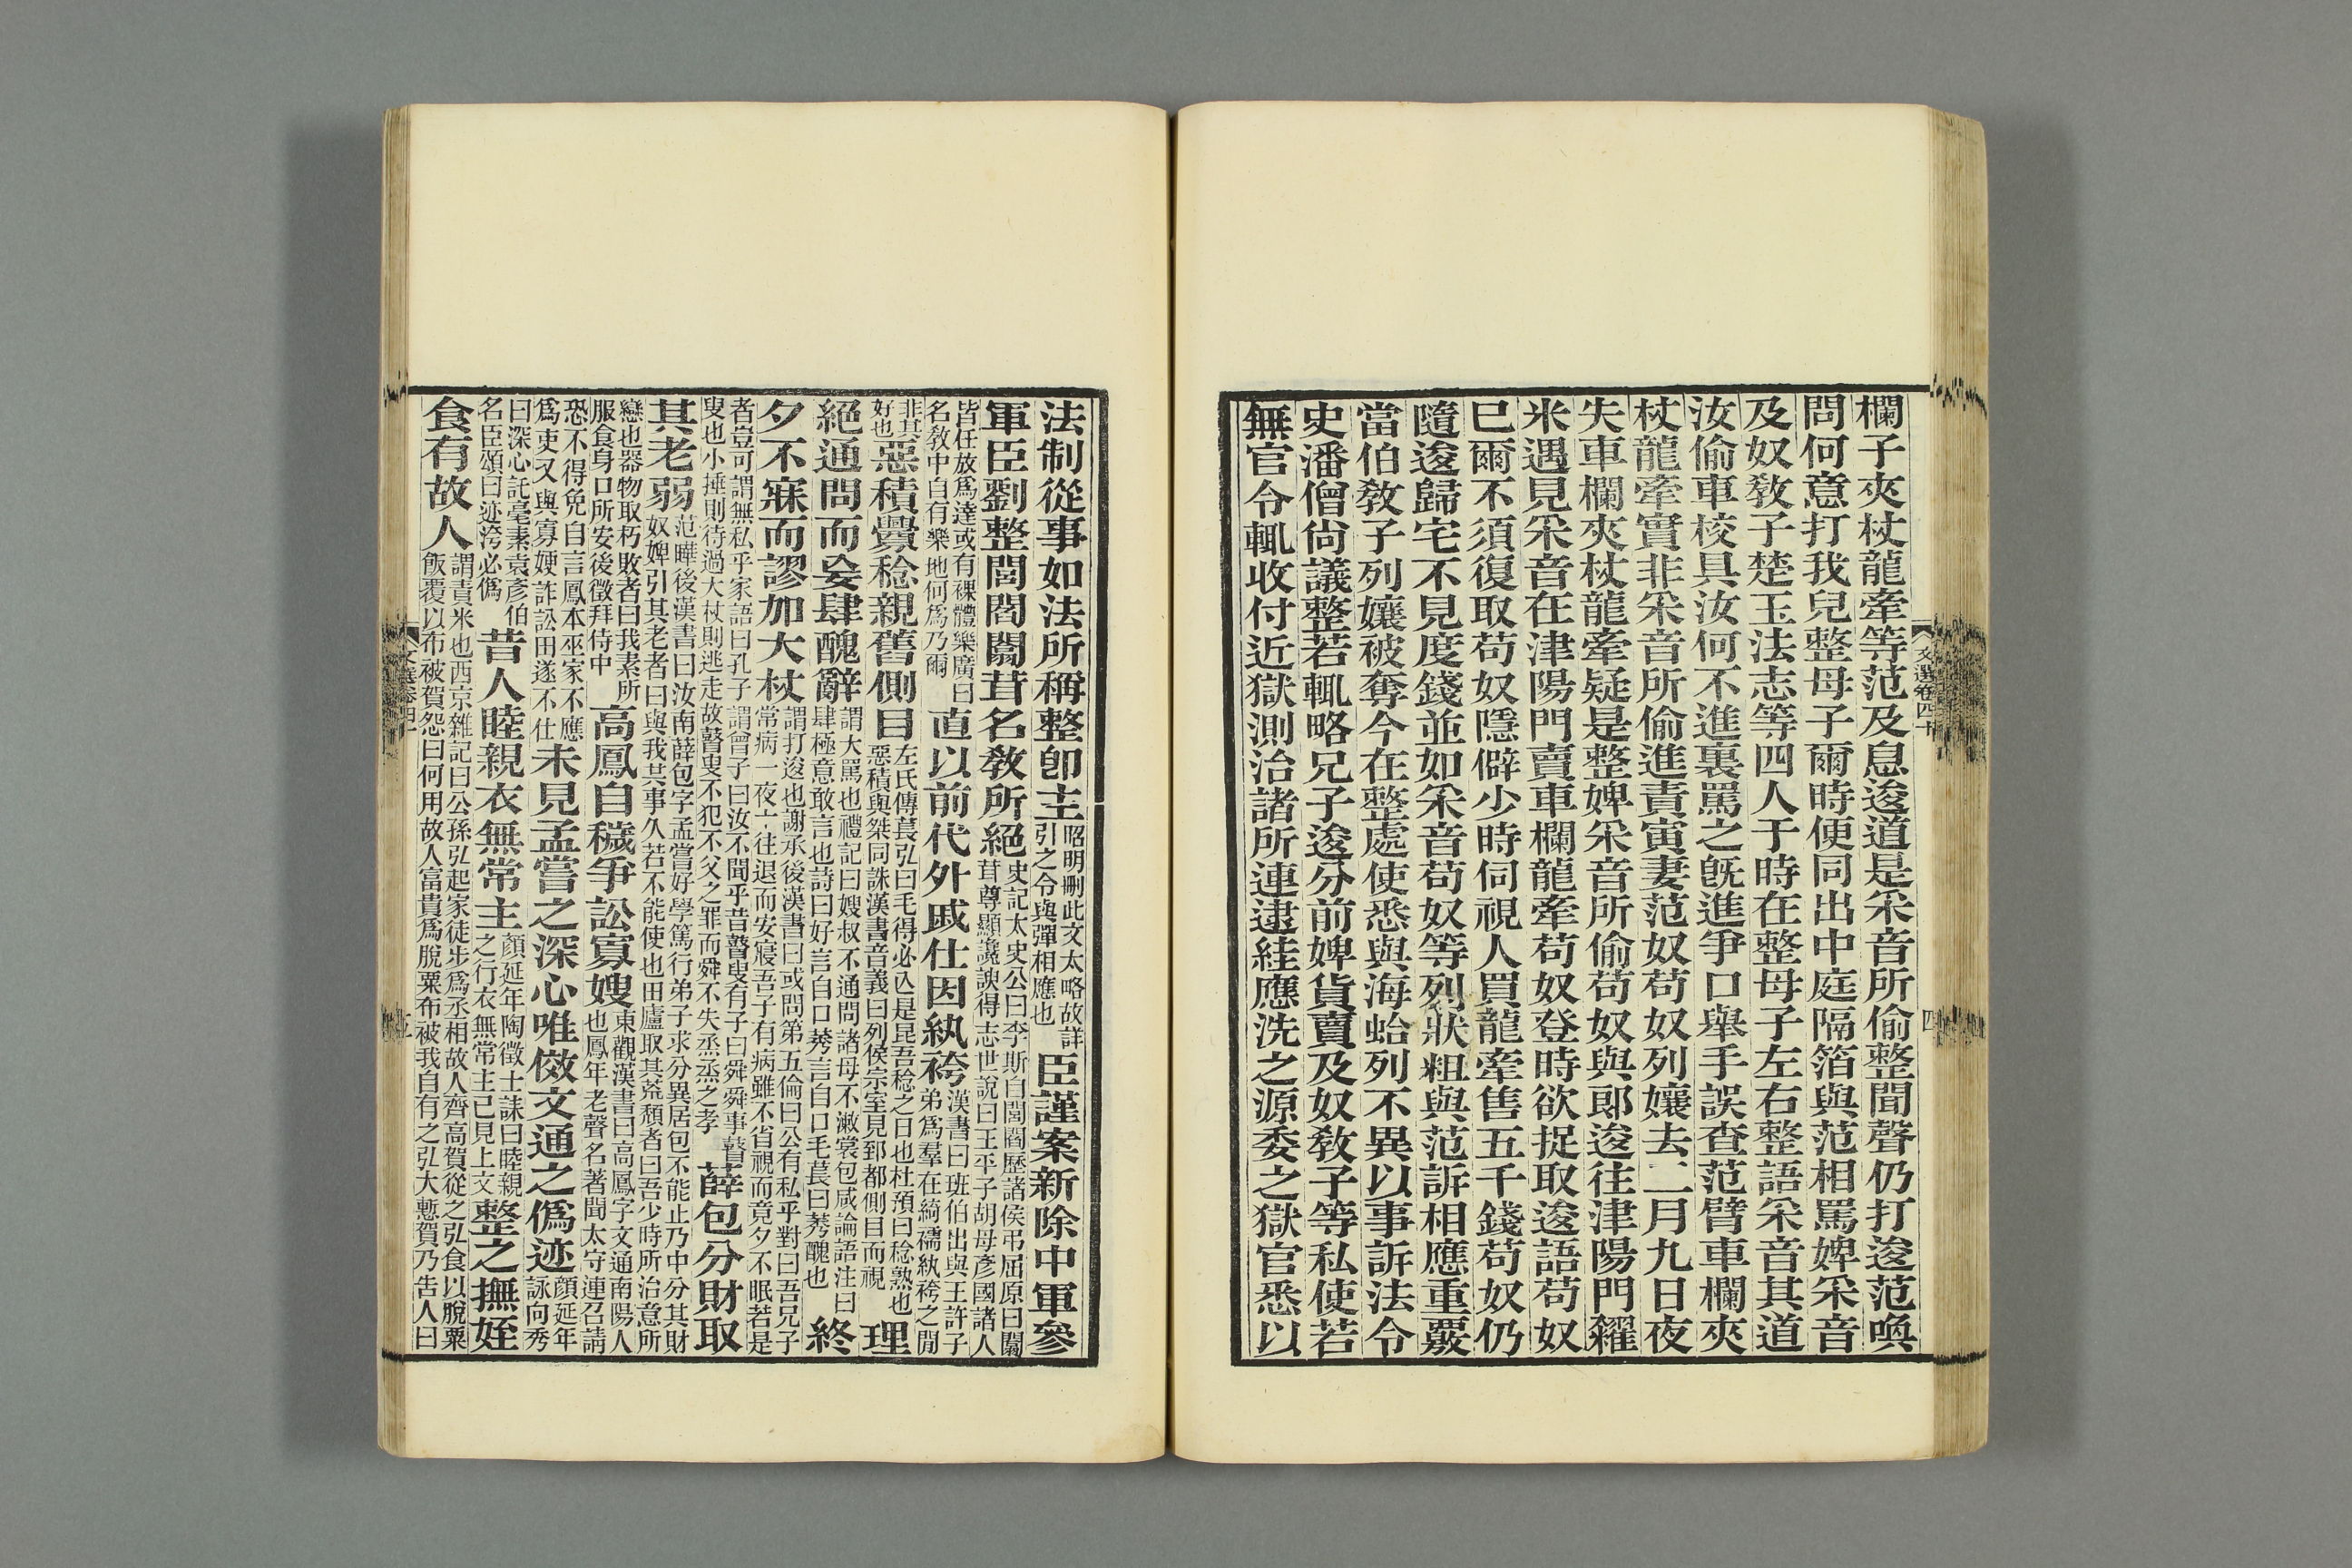 欄子夾杖龍牽等范及息逡道是采音所偷整聞聲仍打逡范喚
問何意打我兒整母子爾時便同出中庭隔箔與范相罵婢采音
及奴教子楚玉法志等四人于時在整母子左右整語采音其道
汝偷車校具汝何不進裏罵之旣進爭口舉手誤查范臂車欄夾
杖龍牽實非采音所偷進責寅妻范奴苟奴列孃去二月九日夜
失車欄夾杖龍牽疑是整婢采音所偷苟奴與郎逡往津陽門糴
米遇見采音在津陽門賣車欄龍牽苟奴登時欲捉取逡語苟奴
已爾不須復取苟奴隱僻少時伺視人買龍牽售五千錢苟奴仍
隨逡歸宅不見度錢並如采音苟奴等列狀粗與范訴相應重覈
當伯教子列孃被奪今在整處使悉與海蛤列不異以事訴法令
史潘僧尚議整若輒略兄子逡分前婢貨賣及奴教子等私使若
無官令輒收付近獄測治諸所連逮絓應洗之源委之獄官悉以
文選卷四十
四
法制從事如法所稱整卽主昭明刪此文太略故詳引之令與彈相應也臣謹案新除中軍參
軍臣劉整閭閻闒茸名教所絕史記太史公曰李斯自閭閻歷諸侯弔屈原曰闒茸尊顯讒諛得志世說曰王平子胡母彥國諸人
皆任放爲達或有裸體樂廣曰名教中自有樂地何爲乃爾直以前代外戚仕因紈袴漢書曰班伯出與王許子弟爲羣在綺襦紈袴之閒
非其好也惡積釁稔親舊側目左氏傳萇弘曰毛得必亾是昆吾稔之日也杜預曰稔熟也惡積與桀同誅漢書音義曰列侯宗室見郅都側目而視理
絕通問而妄肆醜辭謂大罵也禮記曰嫂叔不通問諸母不漱裳包咸論語注曰肆極意敢言也詩曰好言自口莠言自口毛萇曰莠醜也終
夕不寐而謬加大杖謂打逡也謝承後漢書曰或問第五倫曰公有私乎對曰吾兄子常病一夜十往退而安寢吾子有病雖不省視而竟夕不眠若是
者豈可謂無私乎家語曰孔子謂曾子曰汝不聞乎昔瞽叟有子曰舜舜事瞽叟也小捶則待過大杖則逃走故瞽叟不犯不父之罪而舜不失烝烝之孝薛包分財取
其老弱范曄後漢書曰汝南薛包字孟嘗好學篤行弟子求分異居包不能止乃中分其財奴婢引其老者曰與我共事久若不能使也田廬取其荒頹者曰吾少時所治意所
戀也器物取朽敗者曰我素所服食身口所安後徵拜侍中高鳳自穢爭訟寡嫂東觀漢書曰高鳳字文通南陽人也鳳年老聲名著聞太守連召請
恐不得免自言鳳本巫家不應爲吏又與寡嫂詐訟田遂不仕未見孟嘗之深心唯傚文通之僞迹顏延年詠向秀
曰深心託毫素袁彥伯名臣頌曰迹洿必僞昔人睦親衣無常主顏延年陶徵士誄曰睦親之行衣無常主已見上文整之撫姪
食有故人謂責米也西京雜記曰公孫弘起家徒步爲丞相故人齊高賀從之弘食以脫粟飯覆以布被賀怨曰何用故人富貴爲脫粟布被我自有之弘大慙賀乃告人曰
文選卷四十